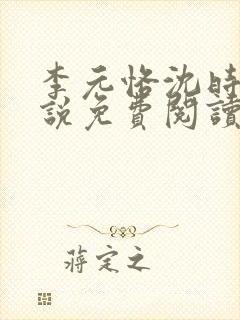 李元恪沈時
說免費閱讀
蔣定之